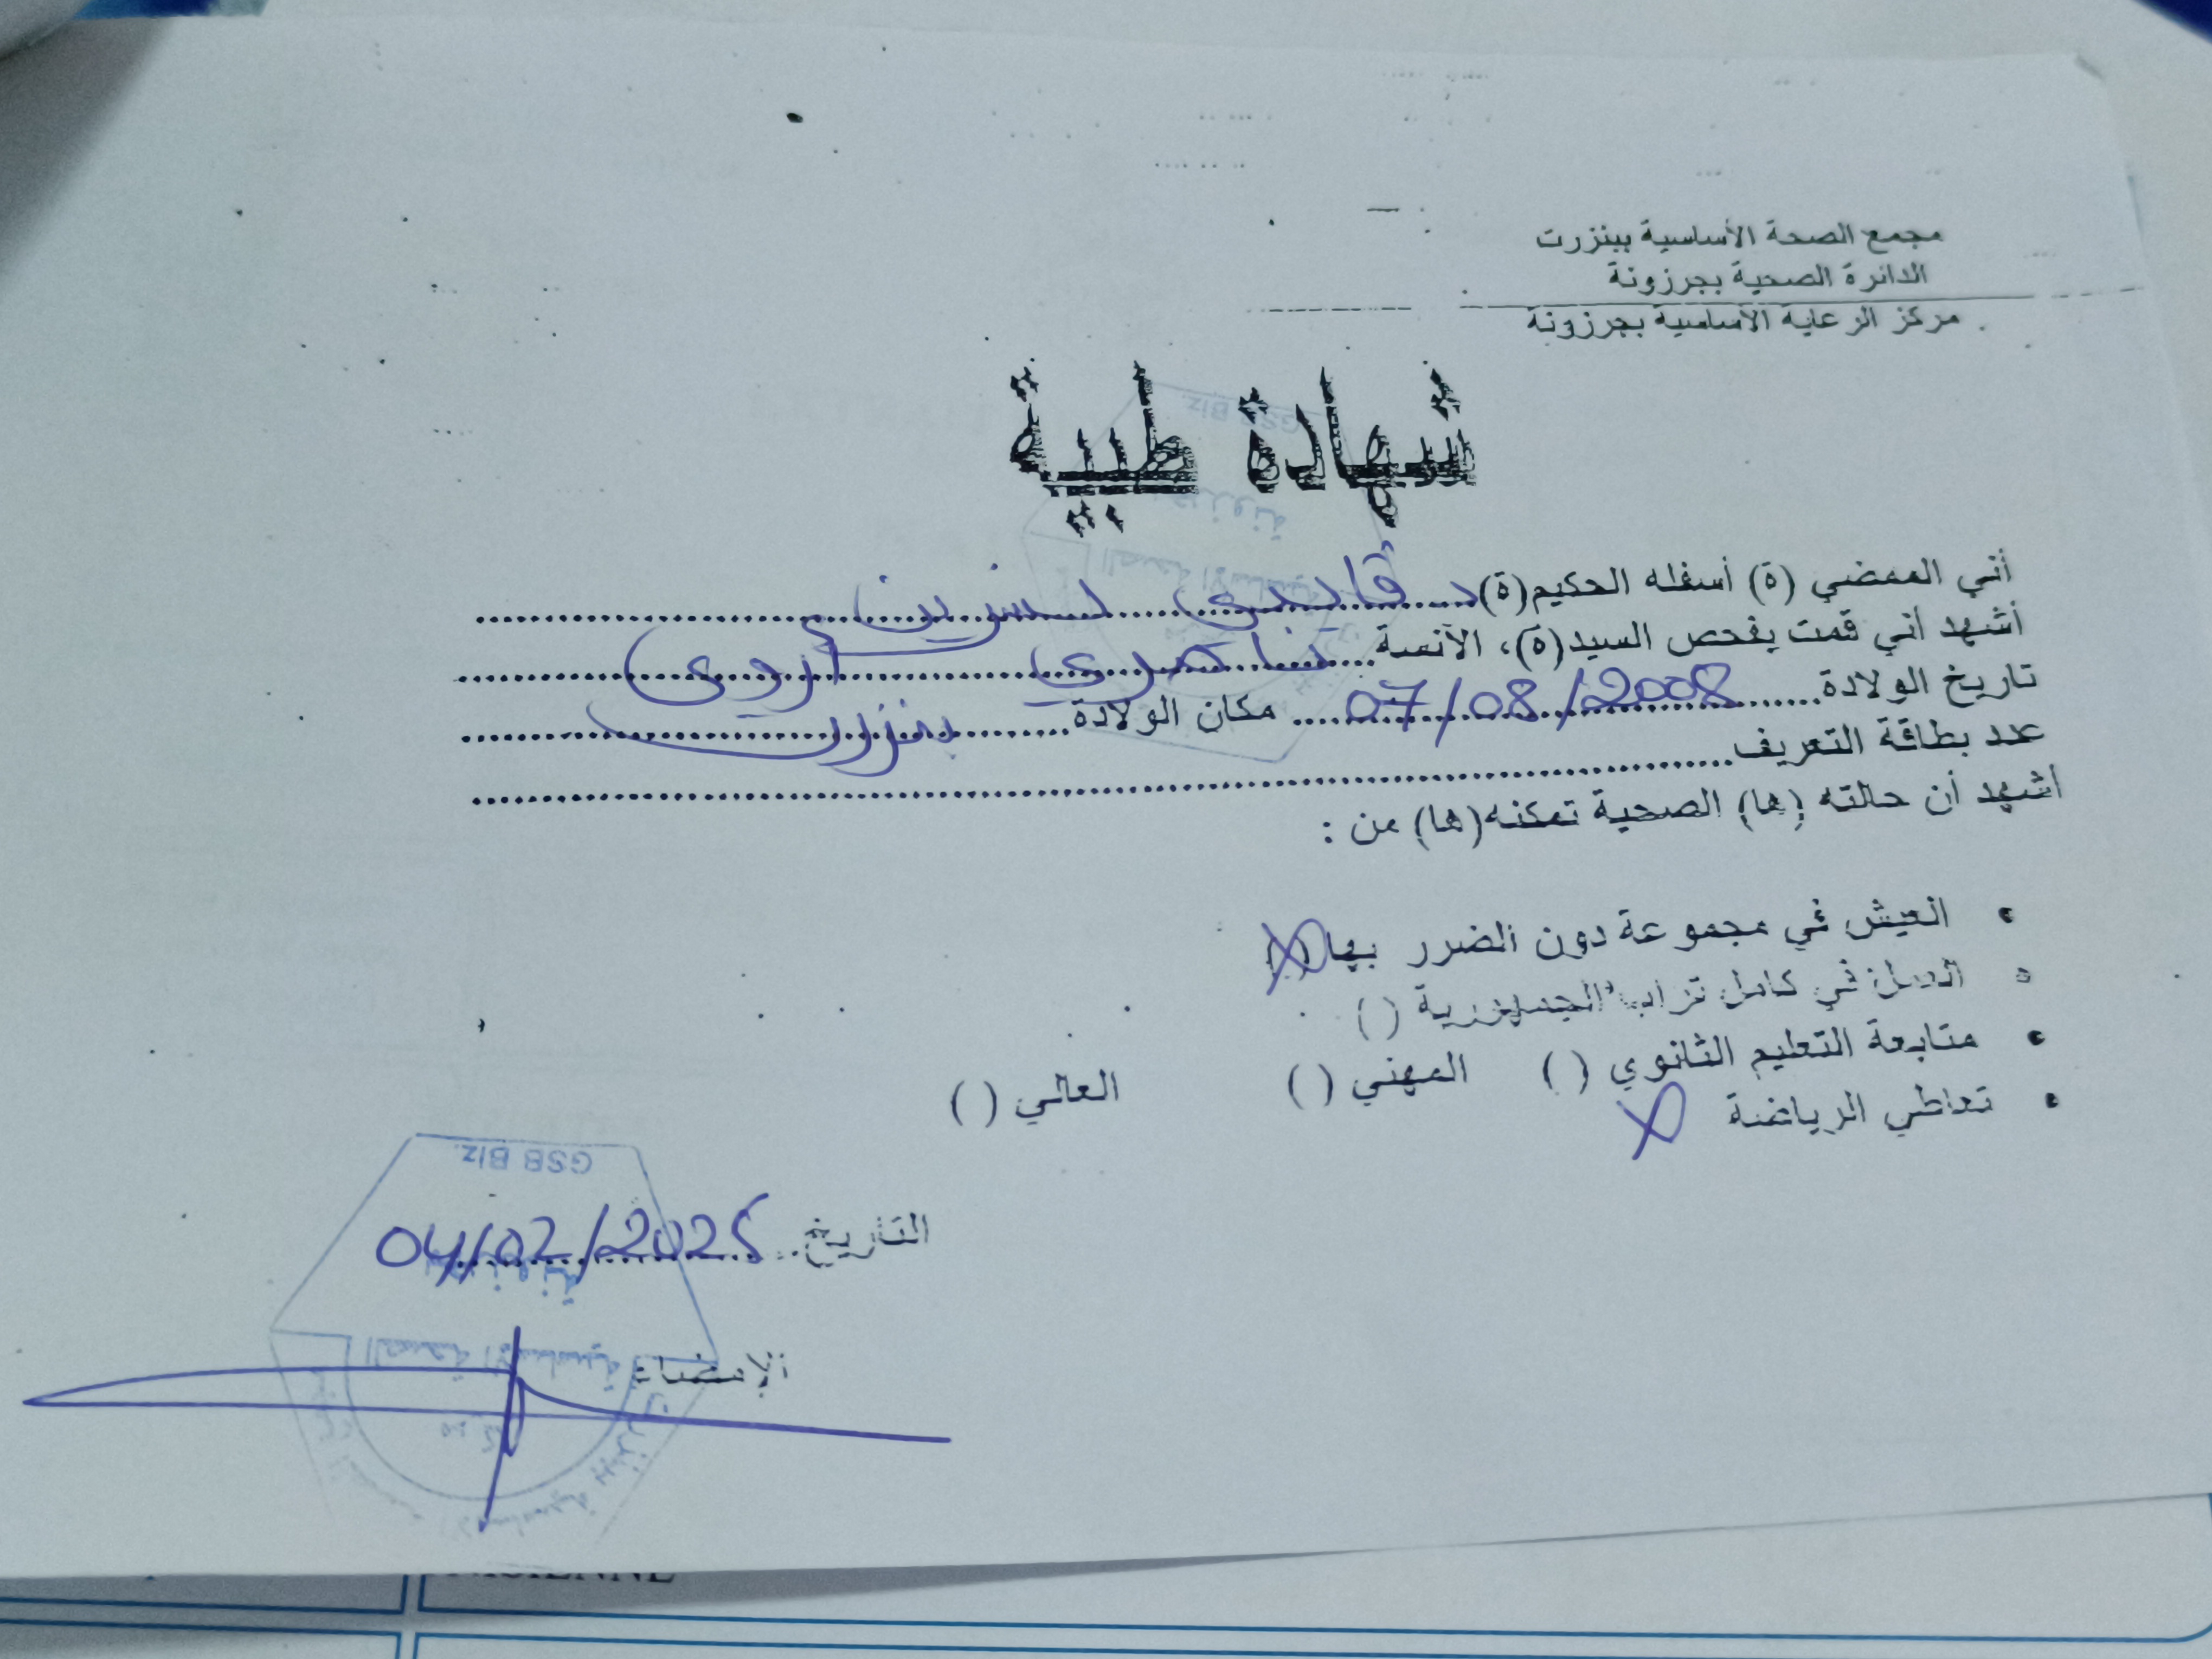 مجمع الصحة الأساسية ببنزرت
الدائرة الصحية بجرزونة
مركز الرعاية الأساسية بجرزونة
شهادة طبية
أني الممضي (ة) أسفله الحكيم(ة)........ نسرين
أشهد أني قمت بفحص السيد(ة)، الآنسة........
تاريخ الولادة........07/08/2008........ مكان الولادة........ بنزرت
عدد بطاقة التعريف........
أشهد أن حالته (ها) الصحية تمكنه(ها) من :
• العيش في مجموعة دون الضرر بها (X)
• العمل في كامل تراب الجمهورية ( )
• متابعة التعليم الثانوي ( ) المهني ( ) العالي ( )
• تعاطي الرياضة X
GSB Biz
التاريخ........04/02/2025
الإمضاء
الصحة الأساسية
NISIENNE